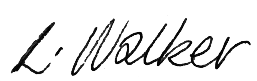 L. Walker